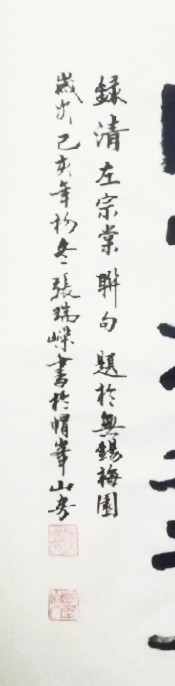 錄清左宗棠聯句題於無錫梅園
歲次己亥年初冬張瑞嶸書於帽峯山房